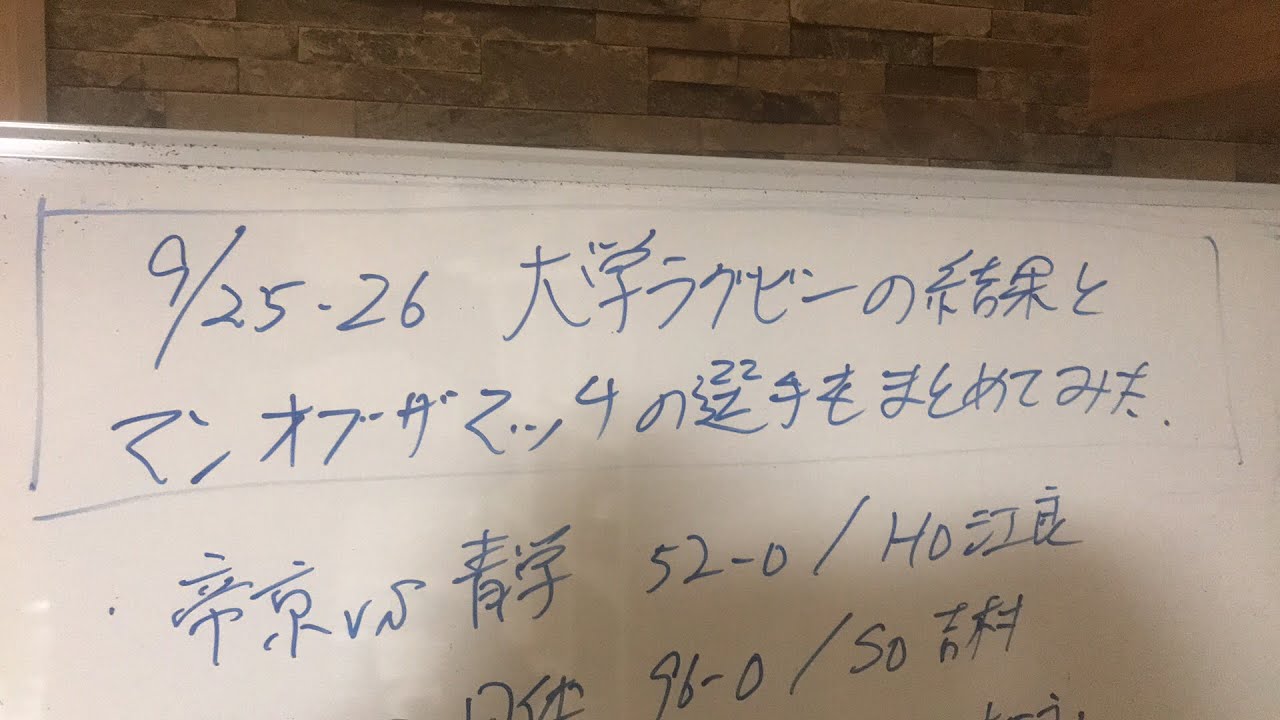 9/25-26 大学ラグビーの結果と
マンオブザマッチの選手をまとめてみた.
・帝京vs青学 52-0 / HO江良
日体 96-0 / SO吉村